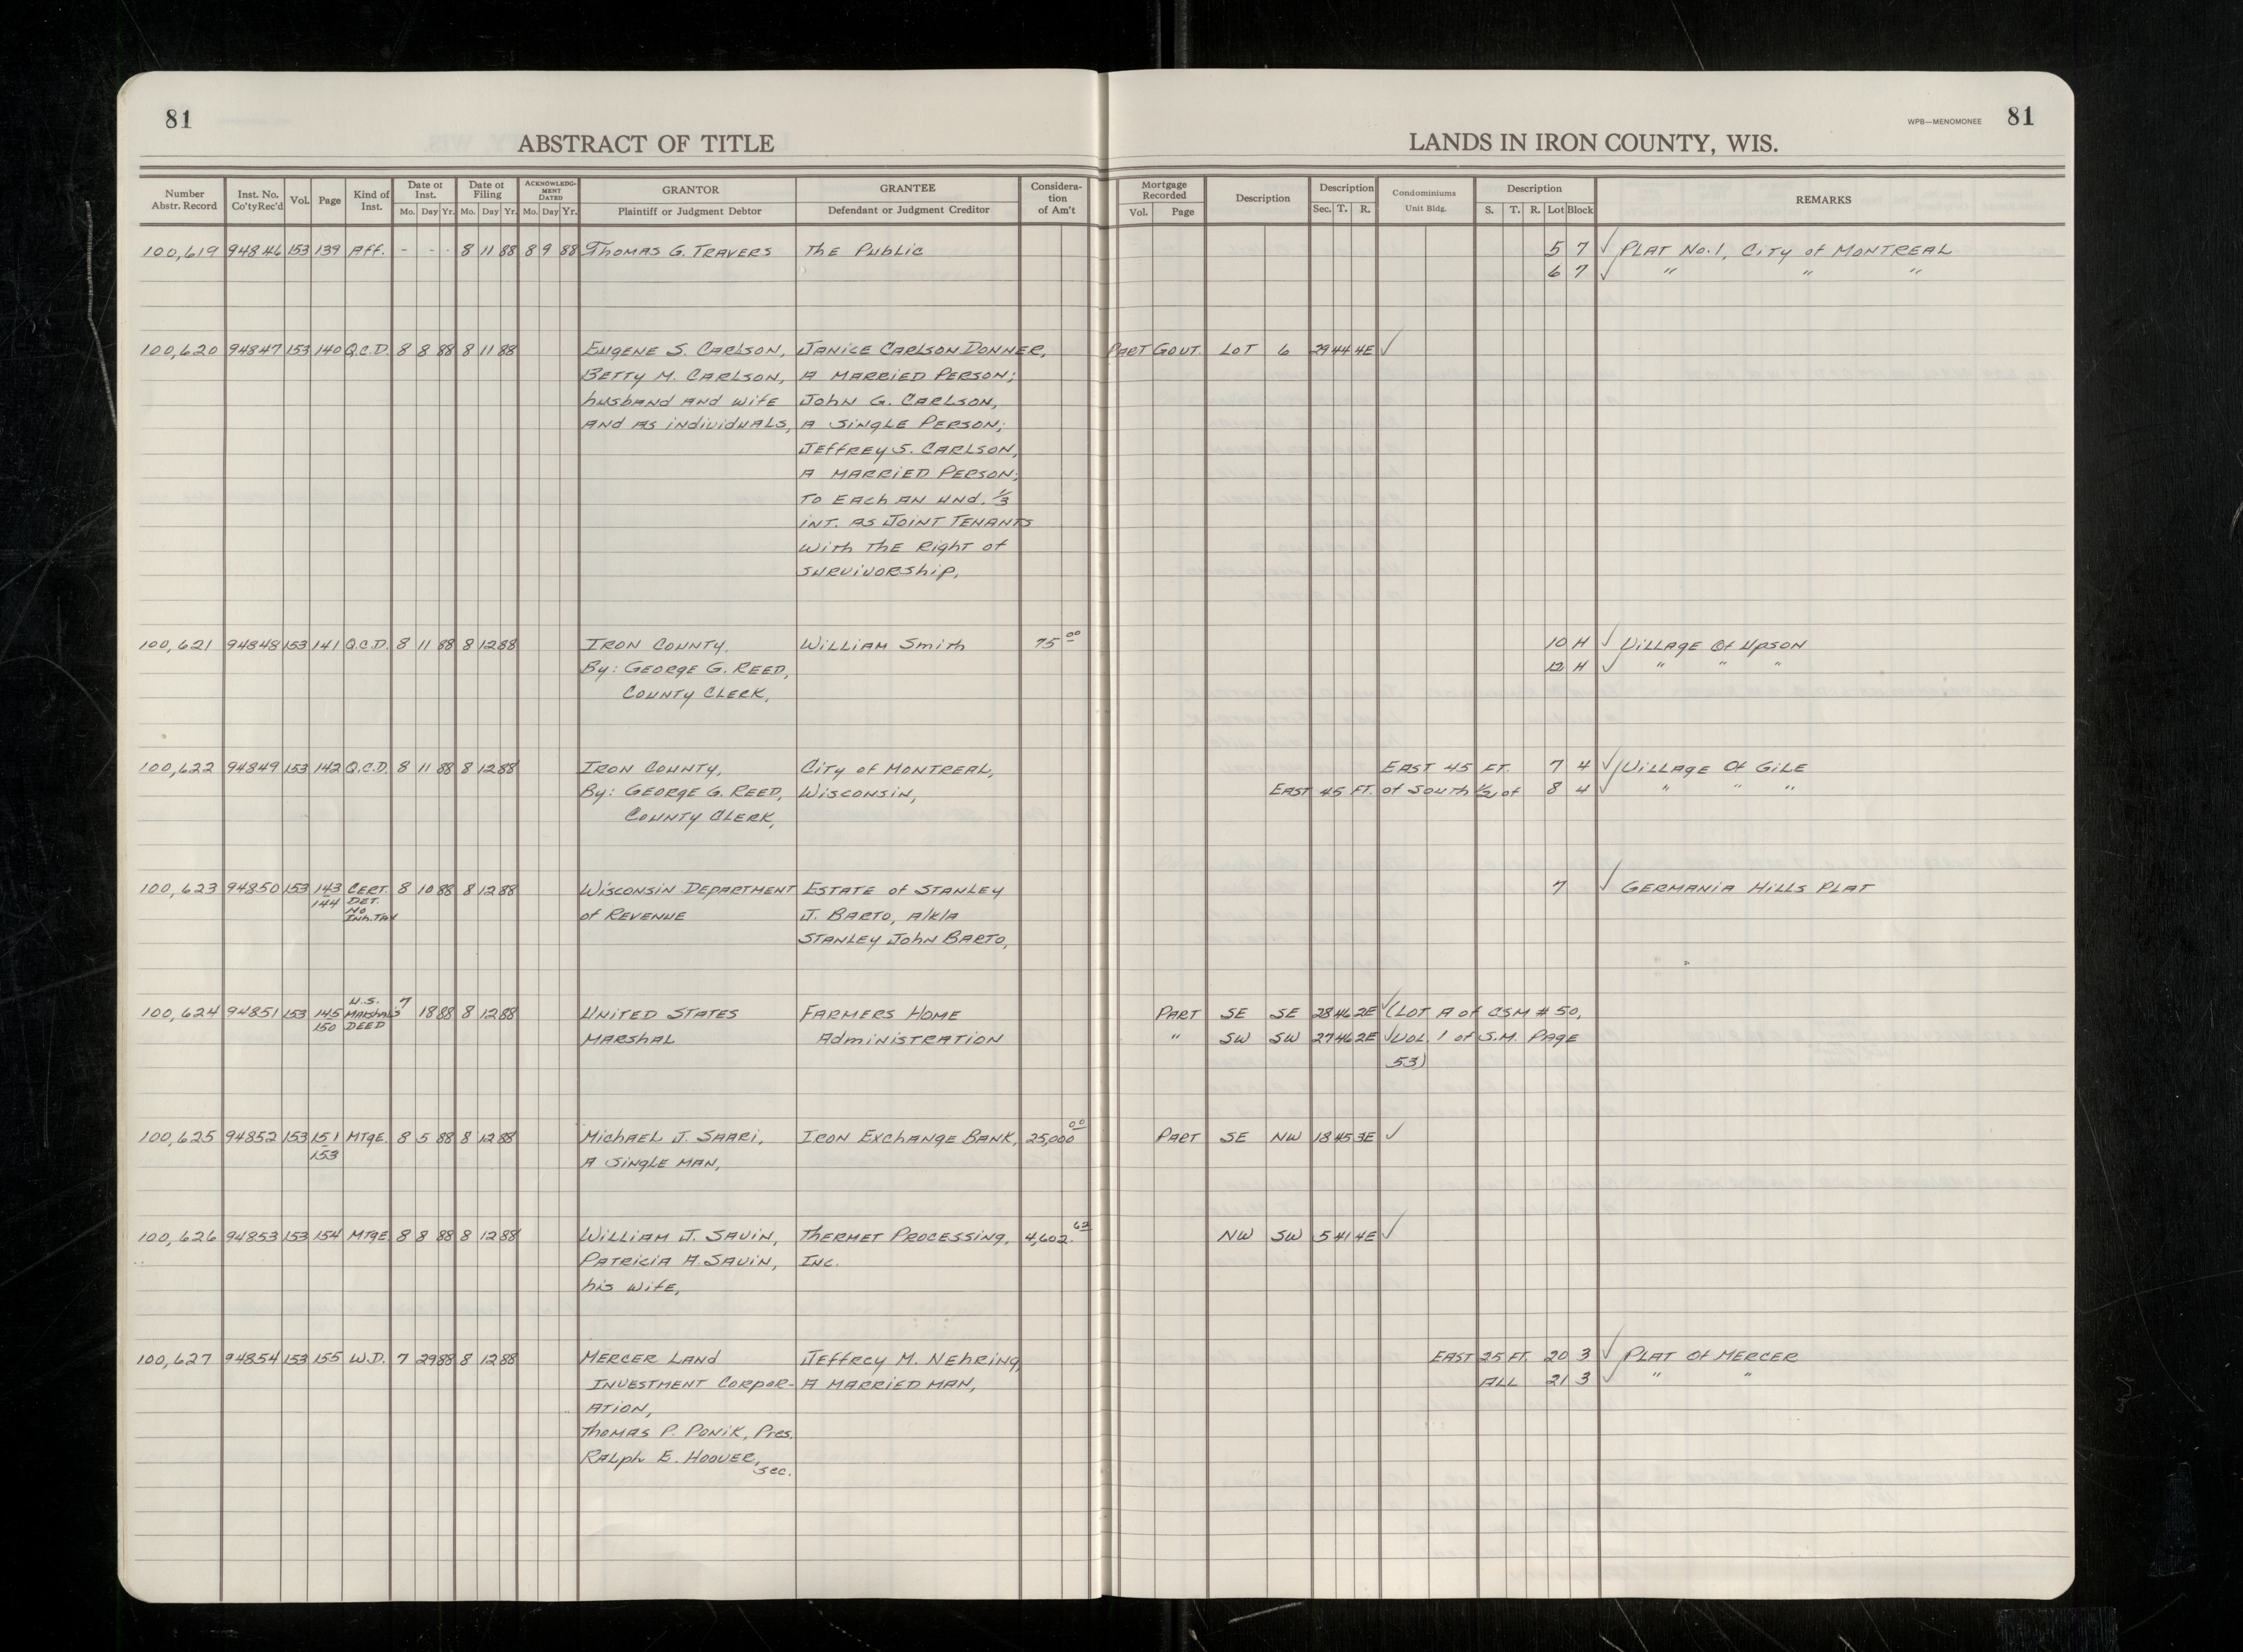 81
ABSTRACT OF TITLE
LANDS IN IRON COUNTY, WIS.
WPB—MENOMONEE
81
Number Abstr. Record | Inst. No. Co'ty Rec'd | Vol. | Page | Kind of Inst. | Date of Inst. Mo. Day Yr. | Date of Filing Mo. Day Yr. | ACKNOWLEDGMENT DATED Mo. Day Yr. | GRANTOR Plaintiff or Judgment Debtor | GRANTEE Defendant or Judgment Creditor | Consideration of Am't | Mortgage Recorded Vol. Page | Description | Description Sec. T. R. | Condominiums Unit Bldg. | Description S. T. R. Lot Block | REMARKS
100,619 94846 153 139 Aff. - - - 8 11 88 8 9 88 Thomas G. Travers The Public 5 7 ✓ Plat No. 1, City of Montreal
6 7 ✓ " " "
100,620 94847 153 140 Q.C.D. 8 8 88 8 11 88 Eugene S. Carlson, Janice Carlson Donner, Part Govt. Lot 6 29 44 4E ✓
Betty M. Carlson, a married person;
husband and wife John G. Carlson,
and as individuals, a single person;
Jeffrey S. Carlson,
a married person;
to each an und. 1/3
int. as joint tenants
with the right of
survivorship,
100,621 94848 153 141 Q.C.D. 8 11 88 8 12 88 Iron County, William Smith 75.00 10 H ✓ Village of Upson
By: George G. Reed, 12 H ✓ " " "
County Clerk,
100,622 94849 153 142 Q.C.D. 8 11 88 8 12 88 Iron County, City of Montreal, East 45 Ft. 7 4 ✓ Village of Gile
By: George G. Reed, Wisconsin, East 45 Ft. of South 1/2 of 8 4 ✓ " " "
County Clerk,
100,623 94850 153 143 Cert. 8 10 88 8 12 88 Wisconsin Department Estate of Stanley 7 ✓ Germania Hills Plat
144 Det.
No
Inh. Tax
of Revenue J. Barto, a/k/a
Stanley John Barto,
100,624 94851 153 145 U.S. Marshal's 7 18 88 8 12 88 United States Farmers Home Part SE SE 28 46 2E ✓ (Lot A of CSM # 50,
150 Deed
Marshal Administration " SW SW 27 46 2E ✓ Vol. 1 of S.M. Page
53)
100,625 94852 153 151 Mtge. 8 5 88 8 12 88 Michael J. Saari, Iron Exchange Bank, 25,000.00 Part SE NW 18 45 3E ✓
153
a single man,
100,626 94853 153 154 Mtge 8 8 88 8 12 88 William J. Savin, Thermet Processing, 4,602.62 NW SW 5 41 4E ✓
Patricia A. Savin, Inc.
his wife,
100,627 94854 153 155 W.D. 7 29 88 8 12 88 Mercer Land Jeffrey M. Nehring, East 25 Ft. 20 3 ✓ Plat of Mercer
Investment Corpor- a married man, All 21 3 ✓ " "
ation,
Thomas P. Ponik, Pres.
Ralph E. Hoover,
Sec.